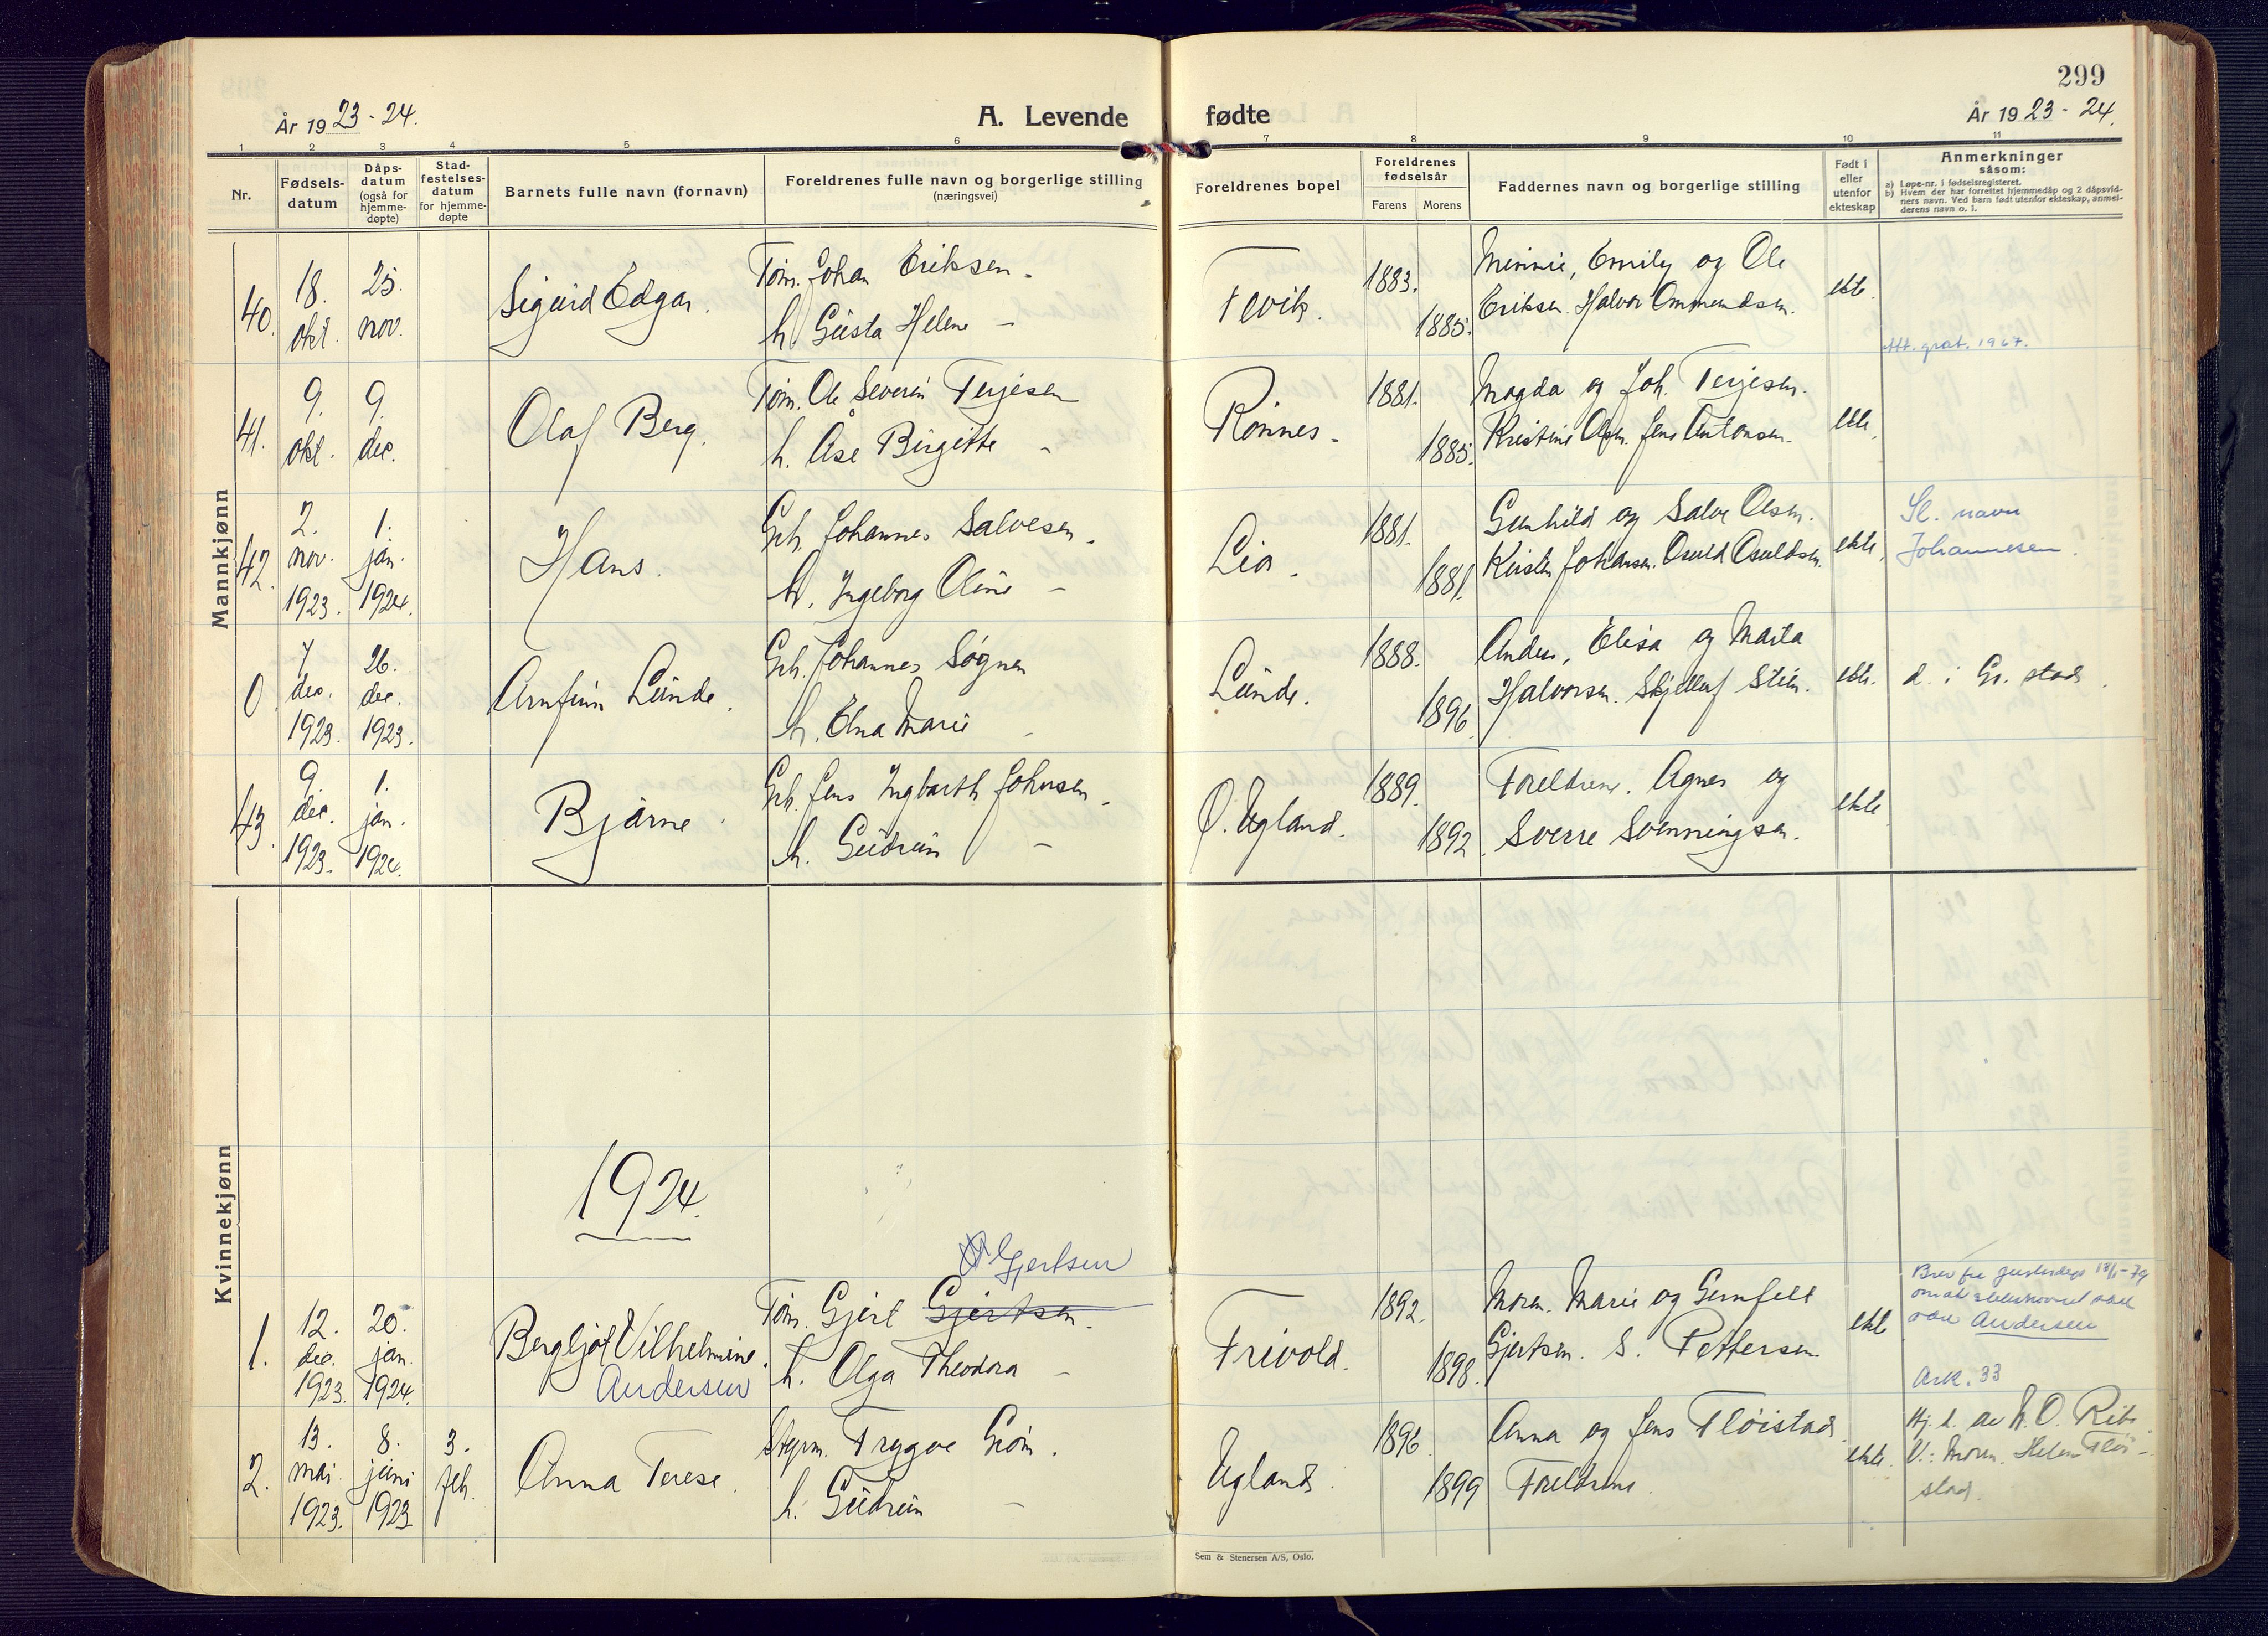 299
År 1923 - 24.
A. Levende
fødte
År 1923 - 24.
1 2 3 4 5 6 7 8 9 10 11
Nr.
Fødsels-
datum
Dåps-
datum
(også for
hjemme-
døpte)
Stad-
festelses-
datum
for hjemme-
døpte
Barnets fulle navn (fornavn)
Foreldrenes fulle navn og borgerlige stilling
(næringsvei)
Foreldrenes bopel
Foreldrenes
fødselsår
Farens Morens
Faddernes navn og borgerlige stilling
Født i
eller
utenfor
ekteskap
Anmerkninger
såsom:
a) Løpe-nr. i fødselsregisteret.
b) Hvem der har forrettet hjemmedåp og 2 dåpsvid-
ners navn. Ved barn født utenfor ekteskap, anmel-
derens navn o. l.
Mannkjønn
40.
18.
okt.
25.
nov.
Sigurd Edgar.
Tøm. Johan Eriksen.
h. Gusta Helene –
Fevik.
1883.
1885.
Minnie, Emily og Ole
Eriksen. Halvor Ommundsen.
ekte.
Att. grat. 1967.
41.
9.
okt.
9.
dec.
Olaf Berg.
Tøm. Ole Severin Terjesen
h. Åse Birgitte –
Rønnes.
1881.
1885.
Magda og Joh. Terjesen.
Kristine Olsen. Jens Antonsen.
ekte.
42.
2.
nov.
1923.
1.
jan.
1924.
Hans.
Gbr. Johannes Salvesen.
h. Ingeborg Oline –
Lia.
1881.
1881.
Gunhild og Salve Olsen.
Kirsten Johansen. Osuld Osuldsen.
ekte.
Sl. navn
Johannesen.
0.
7
dec.
1923.
26.
dec.
1923.
Arnfinn Lunde.
Gbr. Johannes Søgnen
h. Elna Marie –
Lunde.
1888.
1896.
Anders, Elisa og Marta
Halvorsen. Skjelluf Stien.
ekte.
d. i Gr. stad.
43.
9.
dec.
1923.
1.
jan.
1924.
Bjarne.
Gbr. Jens Ingbarth Johnsen.
h. Gudrun –
Ø. Ugland.
1889.
1892.
Foreldrene. Agnes og
Sverre Svenningsen.
ekte
Kvinnekjønn
1924.
Gjertsen
1.
12.
dec.
1923.
20.
jan.
1924.
Bergljot Vilhelmine.
Andersen
Tøm. Gjert Gjertsen.
h. Olga Theodora –
Frivold.
1892.
1898.
Moren. Marie og Gunfeld
Gjertsen. S. Pettersen
ekte
18/1-79
Andersen
Ark. 33
2.
13.
mai.
1923.
8.
juni
1923
3.
feb.
Anna Terese.
Styrm. Trygve Grøm.
h. Gudrun –
Ugland.
1896.
1899
Anna og Jens Fløistad.
Foreldrene.
ekte.
Hj. d. av N. O. Ribe
V.: Moren. Helen Fløi-
stad.
Sem & Stenersen A/S, Oslo.